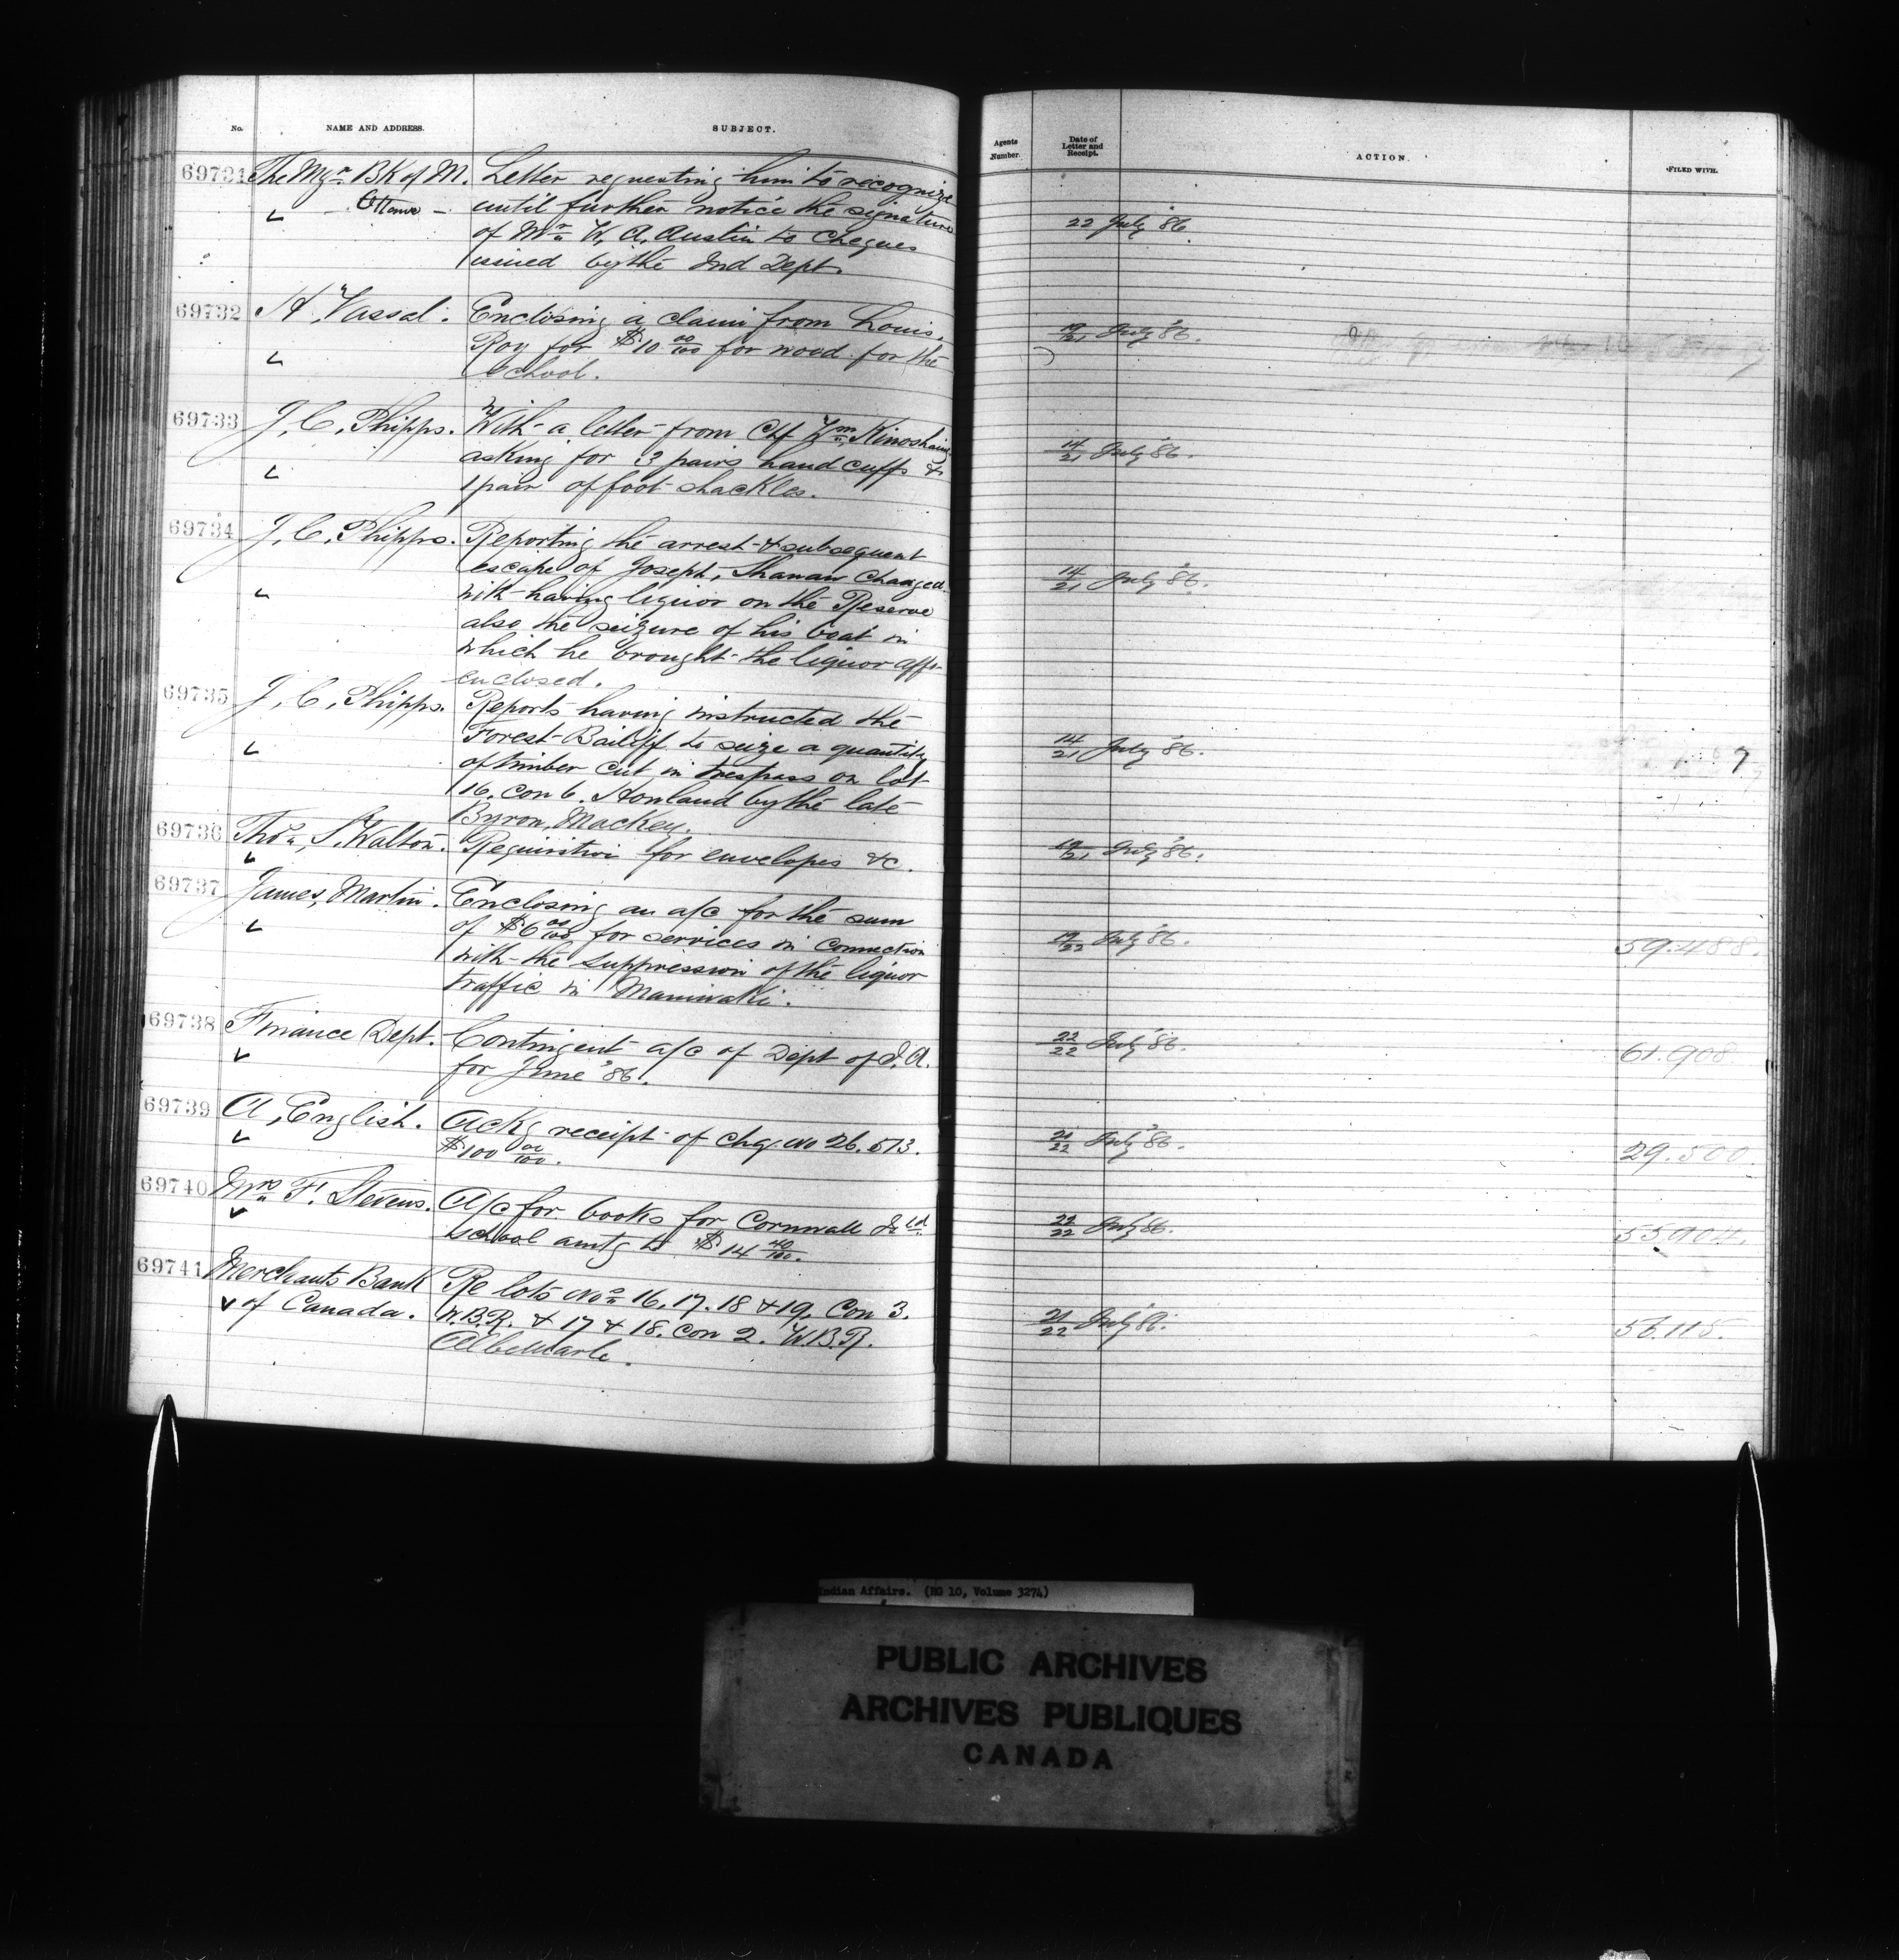 No. NAME AND ADDRESS. SUBJECT.
69731 The Mgr. BK of M. Letter requesting him to recognize
Ottawa - until further notice the signature
of Mr W. A. Austin to cheques
issued by the Ind Dept.
69732 H. Vassal. Enclosing a claim from Louis.
Roy for $10 00/100 for wood for the
School.
69733 J. C. Phipps. With a letter from Chf Wm. Kinoshameg
asking for 3 pairs hand cuffs &
1 pair of foot shackles.
69734 J. C. Phipps. Reporting the arrest & subsequent
escape of Joseph, Shanaw charged
with having liquor on the Reserve
also the seizure of his boat in
which he brought the liquor affs.
enclosed.
69735 J. C. Phipps. Reports having instructed the
Forest Bailiff to seize a quantity
of timber cut in trespass on lot
16. con 6. Howland by the late
Byron, Mackey.
69736 Thos. S. Walton. Requisition for envelopes &c.
69737 James, Martin. Enclosing an a/c for the sum
of $6 00/100 for services in connection
with the suppression of the liquor
traffic in Maniwaki.
69738 Finance Dept. Contingent a/c of Dept of I.A.
for June '86.
69739 A, English. Ackg receipt of chq. no 26.513.
$100 00/100.
69740 Mrs F. Stevens. A/c for books for Cornwall Isld
School amtg to $14 40/100.
69741 Merchants Bank Re lots Nos 16.17.18 & 19, Con 3.
of Canada. W.B.R. & 17 & 18. con 2. W.B.R.
Albemarle.
Agents Number. Date of Letter and Receipt. ACTION. FILED WITH.
22 July '86
19/21 July '86.
14/21 July '86.
14/21 July '86.
14/21 July '86. 7
19/21 July '86.
19/22 July '86. 59.488.
22/22 July '86. 61.908
21/22 July '86. 29.500.
22/22 July '86. 55904.
21/22 July '86. 56.115.
Indian Affairs. (RG 10, Volume 3274)
PUBLIC ARCHIVES
ARCHIVES PUBLIQUES
CANADA